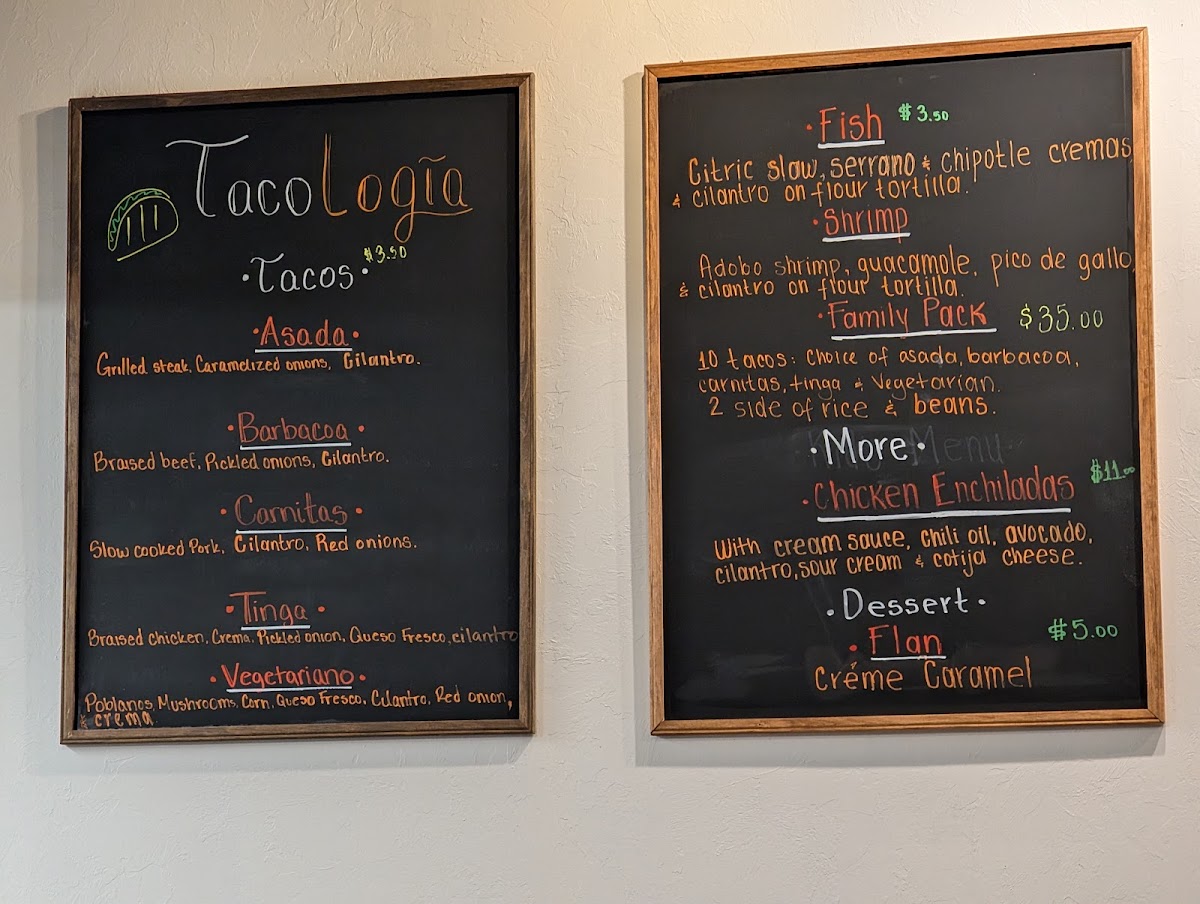 TacoLogía
•Tacos• $3.50
•Asada•
Grilled steak, Caramelized onions, Cilantro.
•Barbacoa•
Braised beef, Pickled onions, Cilantro.
•Carnitas•
Slow cooked Pork, Cilantro, Red onions.
•Tinga•
Braised chicken, Crema, Pickled onion, Queso Fresco, cilantro
•Vegetariano•
Poblanos, Mushrooms, Corn, Queso Fresco, Cilantro, Red onion,
& crema
•Fish $3.50
Citric slaw, serrano & chipotle cremas
& cilantro on flour tortilla.
•Shrimp
Adobo shrimp, guacamole, pico de gallo,
& cilantro on flour tortilla.
•Family Pack $35.00
10 tacos: Choice of asada, barbacoa,
carnitas, tinga & Vegetarian.
2 side of rice & beans.
•More• Menu
•Chicken Enchiladas $11.00
With cream sauce, chili oil, avocado,
cilantro, sour cream & cotija cheese.
•Dessert•
•Flan $5.00
créme Caramel